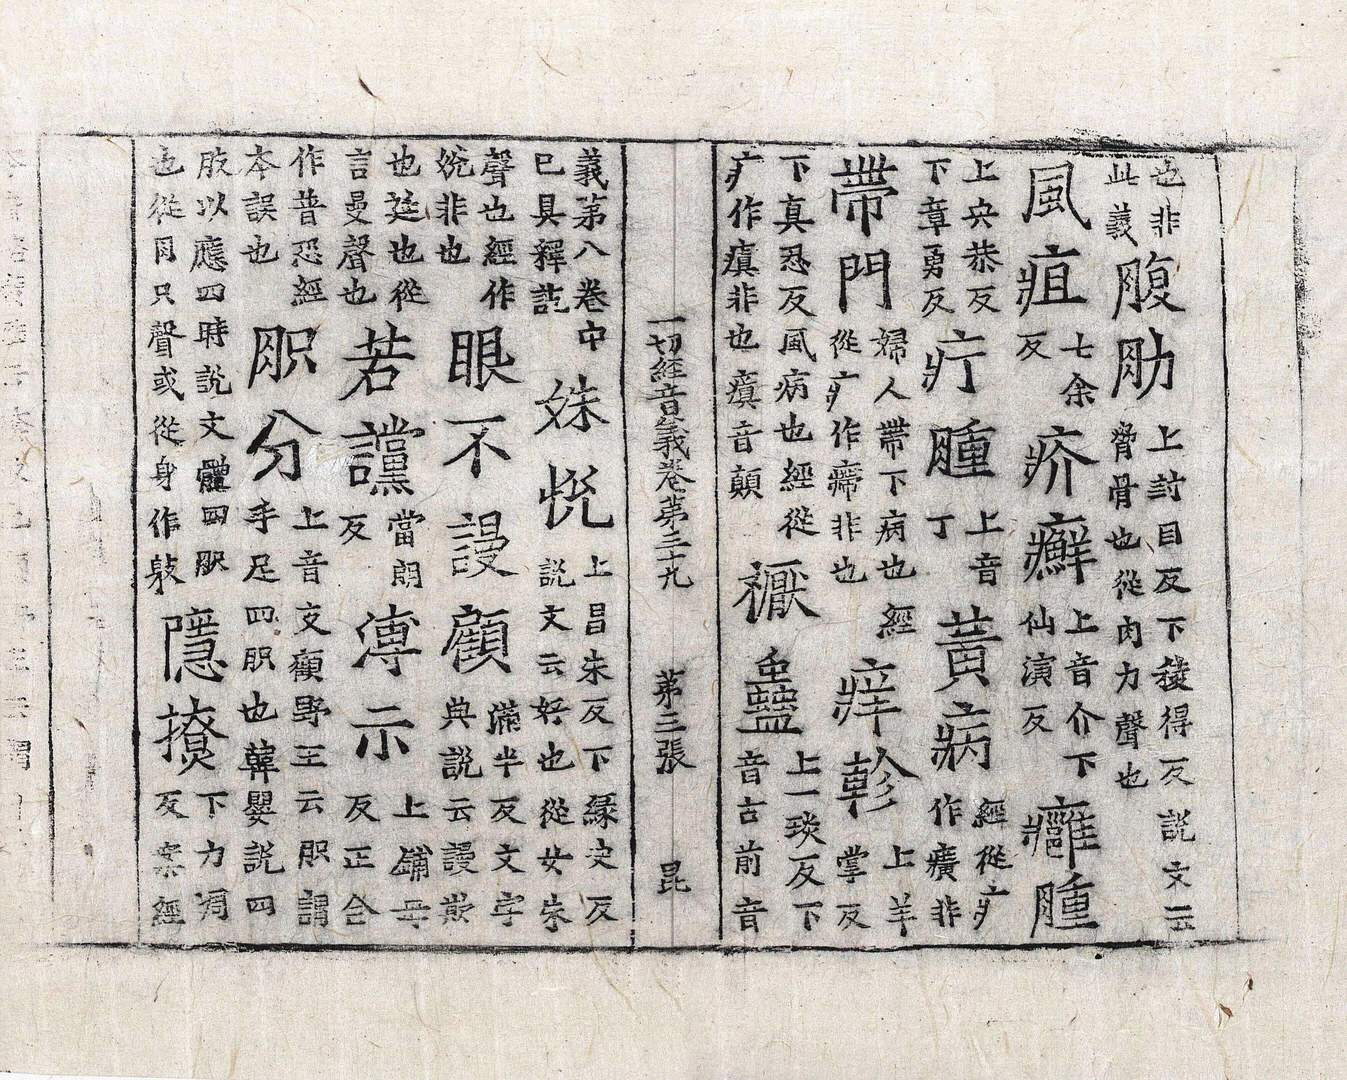 也非此義腹肋上封目反下稜得反說文云脅骨也從肉力聲也
風疽七余反疥癬上音介下仙演反癰腫
上央恭反下章勇反疔腫上音丁黃病經從疒作癀非
帶門婦人帶下病也經從疒作㿃非也痒胗上羊掌反
下真忍反風病也經從疒作瘨非也瘨音顛蠱上一琰反下音古前音
一切經音義卷第三十九 第三張 昆
義第八卷中已具釋訖姝悅上昌朱反下緣反說文云好也從女朱
聲也經作娧非也眼不謾顧滿半反文字典說云謾欺
也延也從言曼聲也若讜當朗反溥示上鋪母反正合
作普恐經本誤也胑分上音支顧野王云胑謂手足四胑也韓嬰說四
肢以應四時說文體四胑也從月只聲或從身作隱撩下力凋反案經